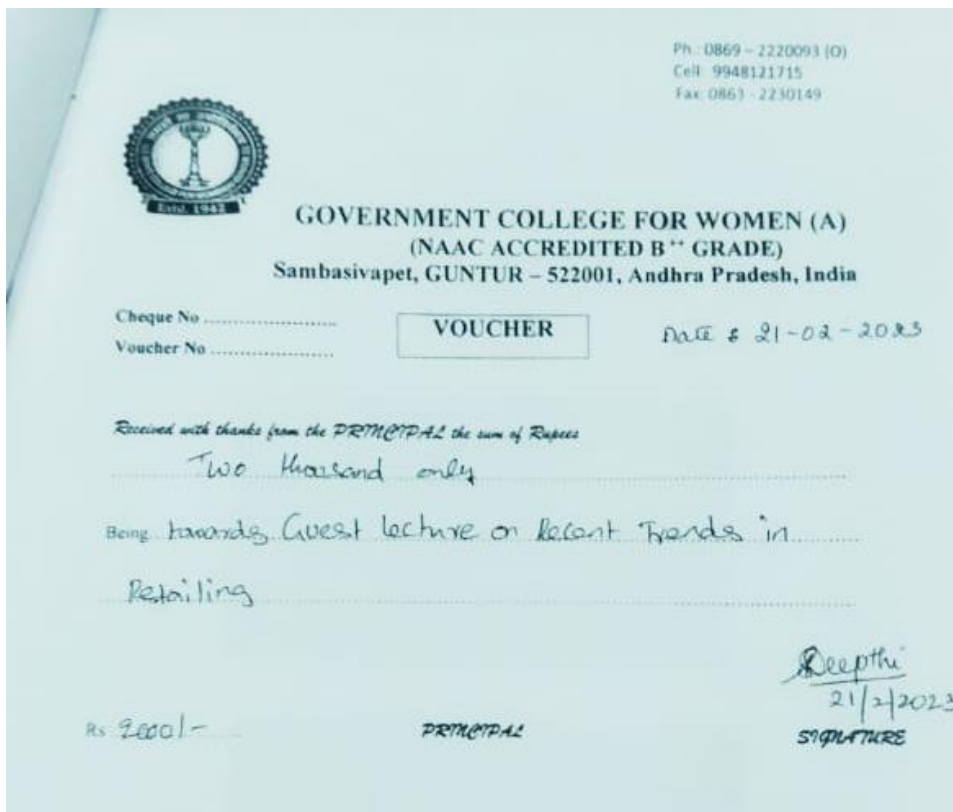 Ph : 0869 – 2220093 (O)
Cell: 9948121715
Fax: 0863 - 2230149
Estd. 1942
GOVERNMENT COLLEGE FOR WOMEN (A)
(NAAC ACCREDITED B++ GRADE)
Sambasivapet, GUNTUR – 522001, Andhra Pradesh, India
Cheque No ......................
VOUCHER
Date : 21-02-2023
Voucher No ......................
Received with thanks from the PRINCIPAL the sum of Rupees
Two thousand only
Being towards Guest lecture on Recent Trends in
Retailing
Deepthi
21/2/2023
Rs 2000/-
PRINCIPAL
SIGNATURE